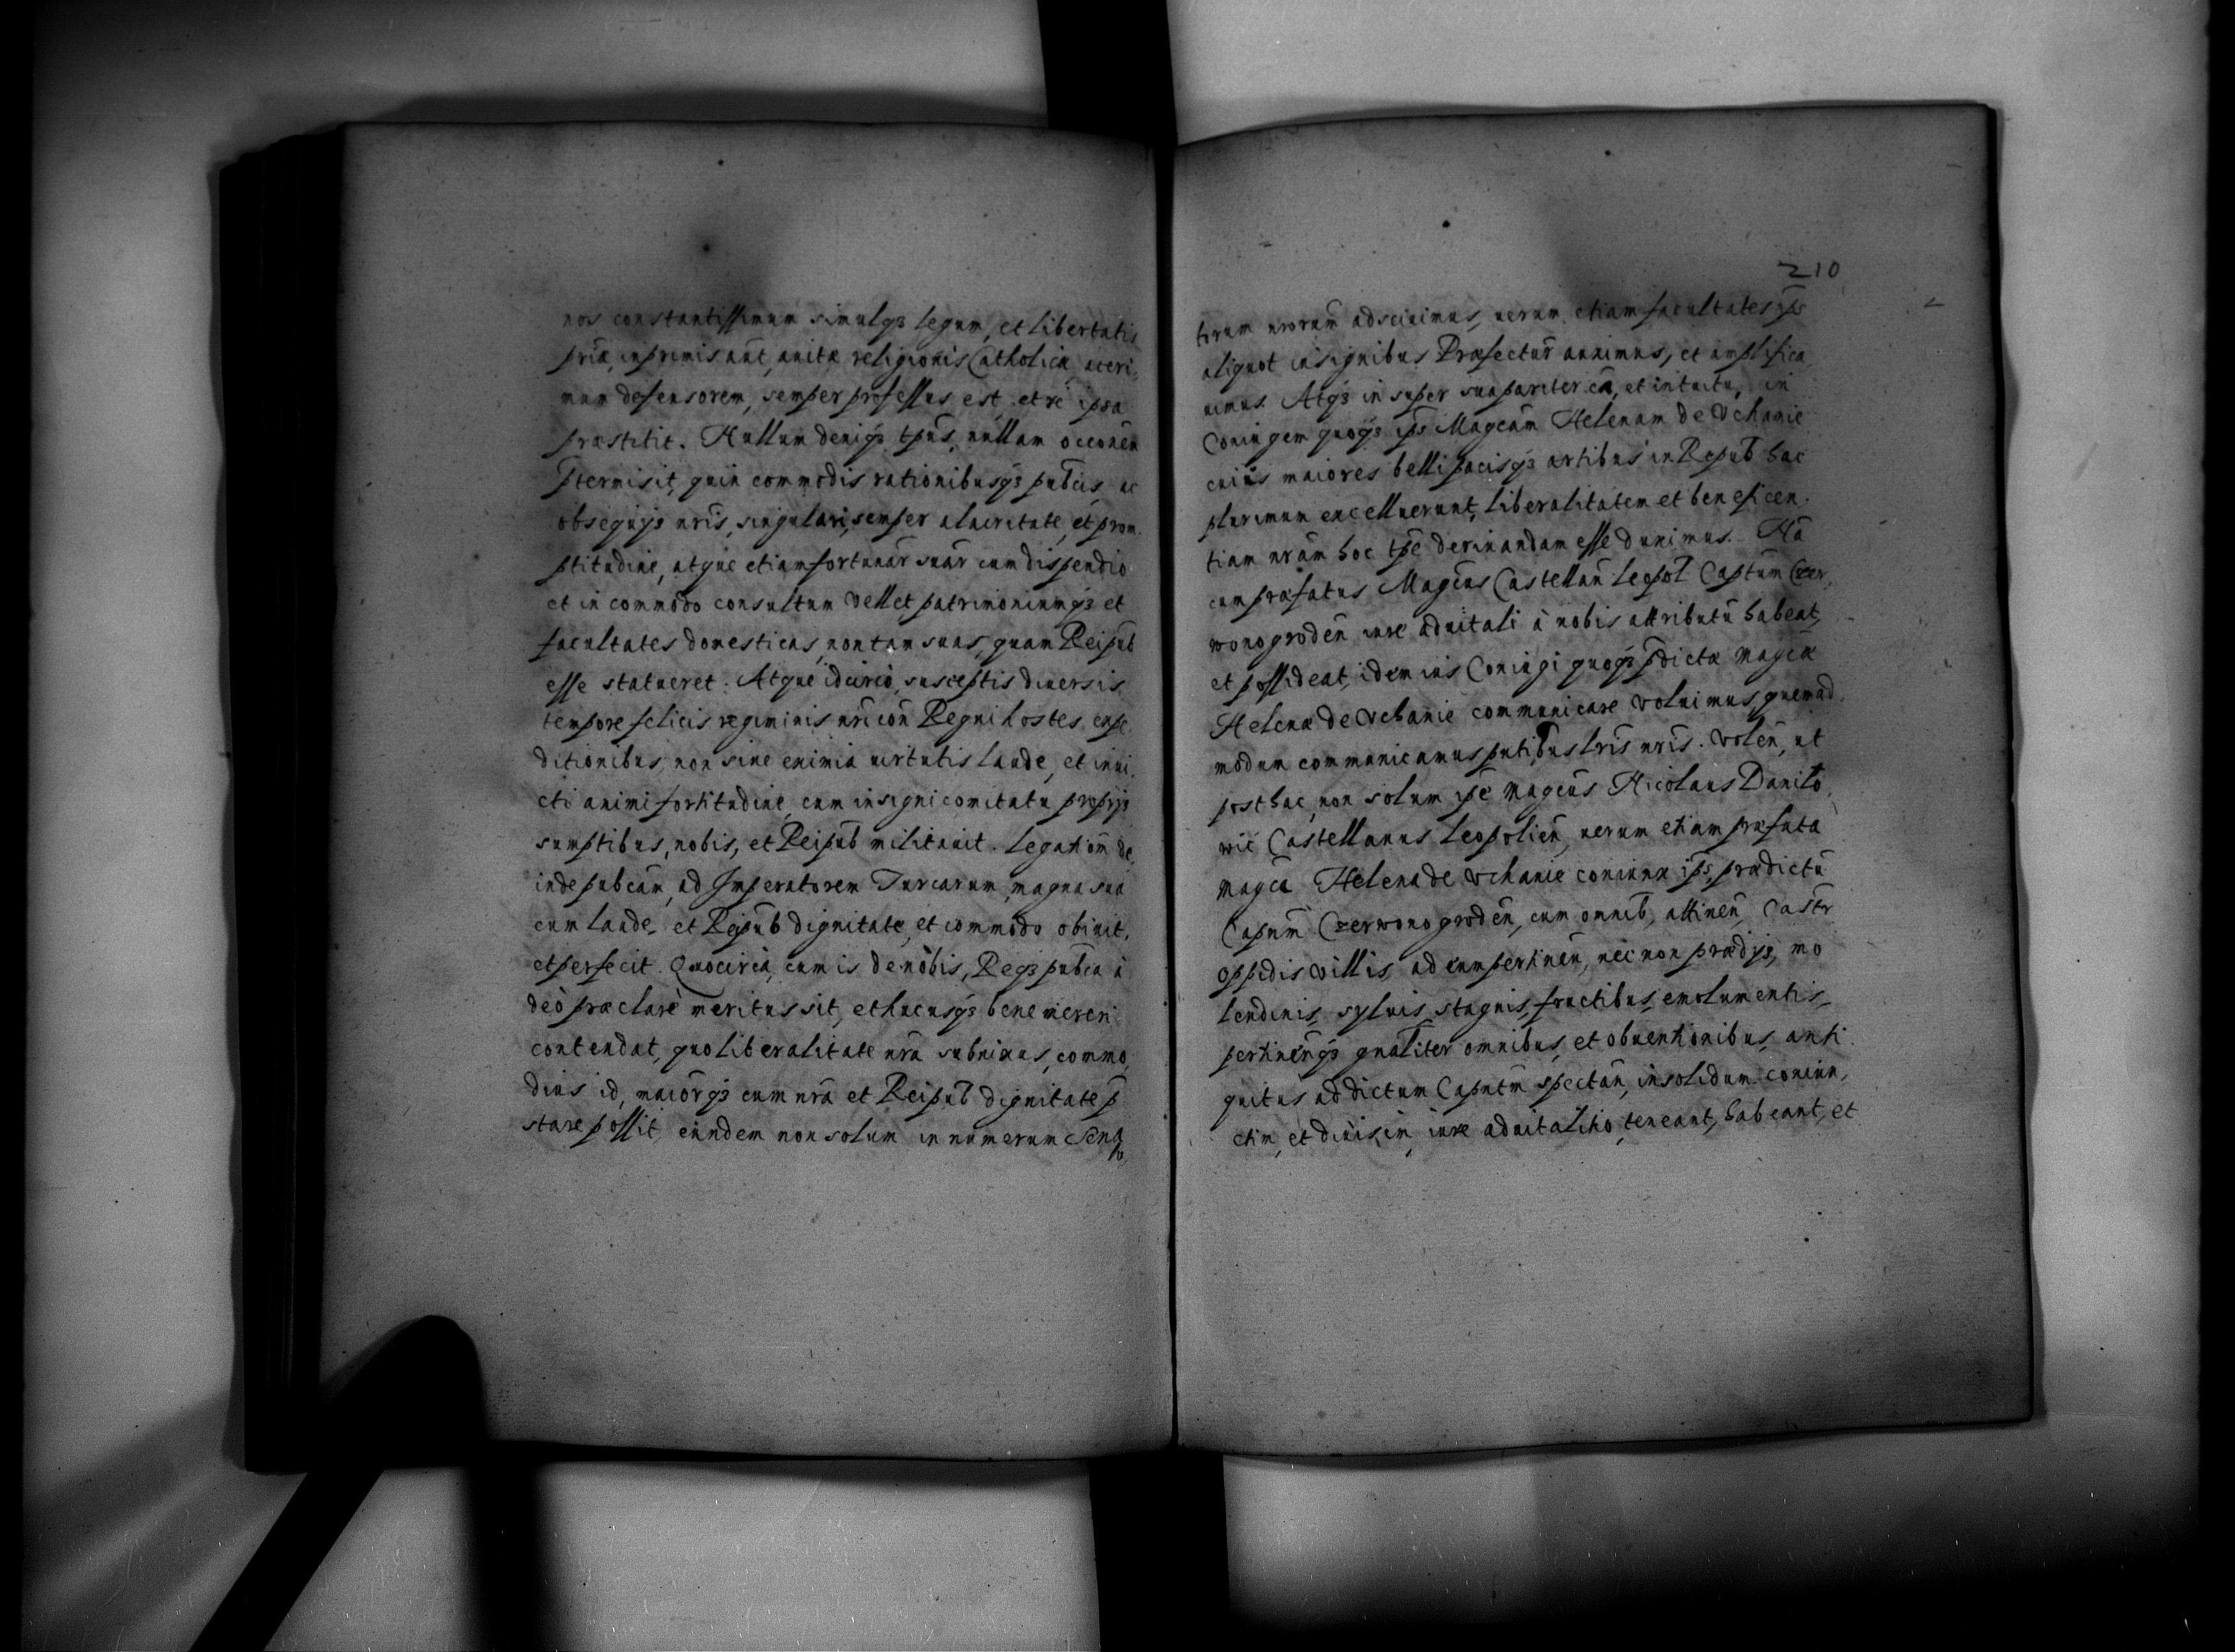 nos constantissimum simulqȝ legum, et libertatis
priæ, inprimis aut̃, auitæ religionis Catholicæ aceri,
mum defensorem, semper professus est, et re ipsa
præstitit. Nullum deniqȝ tp̃us, nullam occonem
p̃termisit, quin commodis rationibusqȝ pub̃cis, ac
obsequijs nr̃is, singulari, semper alacritate, et prom,
ptitudine, atque etiam fortunar̃ suar̃ cum dispendio
et in commodo consultum vellet patrimoniumqȝ et
facultates domesticas, non tam suas, quam Reipub̃
esse statueret. Atque idcirco, susceptis diuersis
tempore felicis regiminis nr̃i con̄ Regni hostes, expe
ditionibus, non sine eximia uirtutis laude, et inui,
cti animi fortitudine, cum insigni comitatu proprijs
sumptibus, nobis, et Reipub̃ militauit. Legation̄ de,
inde pubcam̄, ad Imperatorem Turcarum, magna sua
cum laude, et Reipub̃ dignitate, et commodo obiuit,
et perfecit. Quocirca, cum is de nobis, Reqȝ pubca à
deò præclarè meritus sit, et hucusqȝ bene mereri
contendat, quo liberalitate nr̃a subnixus, commo,
dius id, maiorqȝ cum nr̃a et Reipub̃ dignitate p̃
stare possit, eundem non solum in numerum Sena
210
torum nrorum̄ adsciuimus, uerum etiam facultates ip̃s
aliquot insignibus Præfectur̃ auximus, et amplifica
uimus. Atqȝ in super sua pariter cã, et intuitu, in
Coniugem quoqȝ ip̃s Magcam̄ Helenam de Vchanie
cuius maiores belli pacisqȝ artibus in Repub̃ hac
plurimum excelluerunt, liberalitatem et beneficen.
tiam nr̃am hoc tp̃e deriuandam esse duximus. Nã
cum præfatus Magcus Castellan̄ Leopol̃ Captum Czer,
wonogroden̄ iure aduitali à nobis attributū habeat,
et possideat, idem ius Coniugi quoqȝ p̃dictæ Magcæ
Helenæ de Vchanie communicare voluimus, quemad
modum communicamus pn̄tibus lr̃is nr̃is. Volen̄, ut
posthac, non solum ip̃e Magcus Nicolaus Danilo,
wic Castellanus Leopolien̄, uerum etiam præfata
Magca Helena de Vchanie coniunx ip̃s, prædictū
Capnm̄ Czerwonogroden̄, cum omnib, attinen̄, Castr
oppidis villis, ad eum pertinen̄, nec non prædijs, mo
lendinis, syluis, stagnis, fructibus, emolumentis,
pertinen̄qȝ gnãliter omnibus, et obuentionibus, anti
quitus ad dictum Capntm̄ spectan̄, insolidum coniun,
ctim, et diuisim iure aduitalitio, teneant, habeant, et